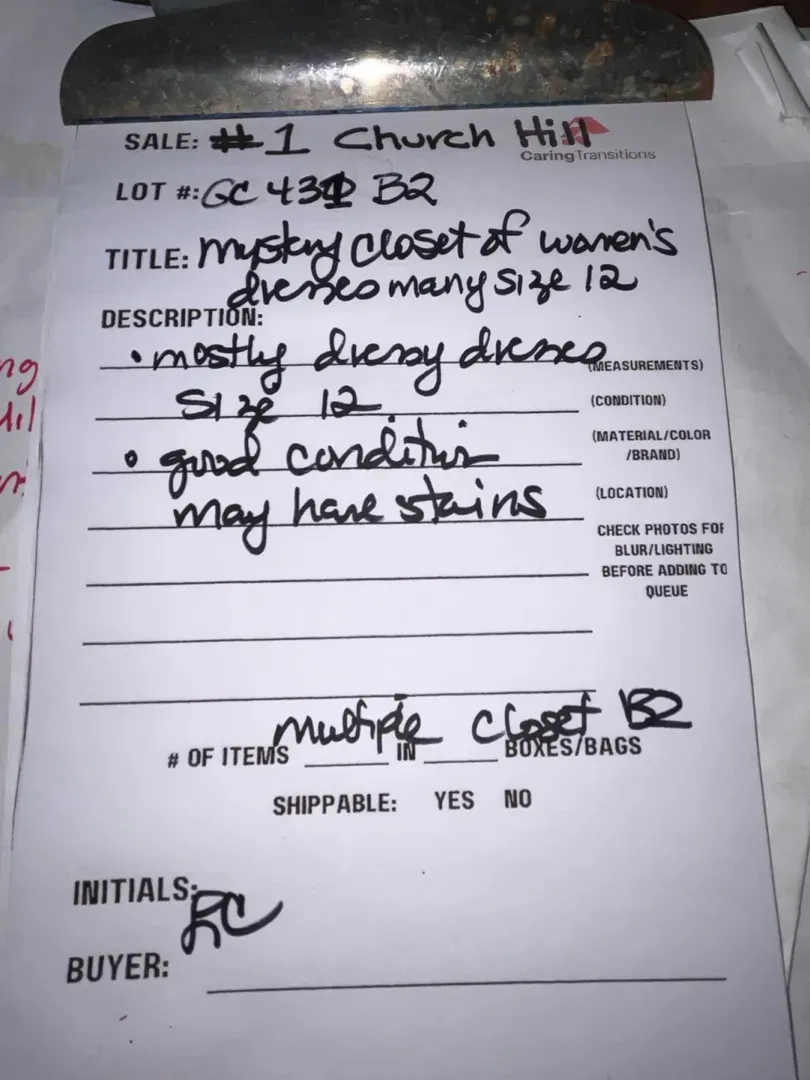 SALE: #1 Church Hill
CaringTransitions
LOT #: GC 431 B2
TITLE: Mystery closet of women's
dresses many size 12
DESCRIPTION:
• mostly dressy dresses
(MEASUREMENTS)
size 12
(CONDITION)
• good condition
(MATERIAL/COLOR
/BRAND)
may have stains
(LOCATION)
CHECK PHOTOS FOR
BLUR/LIGHTING
BEFORE ADDING TO
QUEUE
multiple closet B2
# OF ITEMS IN BOXES/BAGS
SHIPPABLE: YES NO
INITIALS: RC
BUYER: